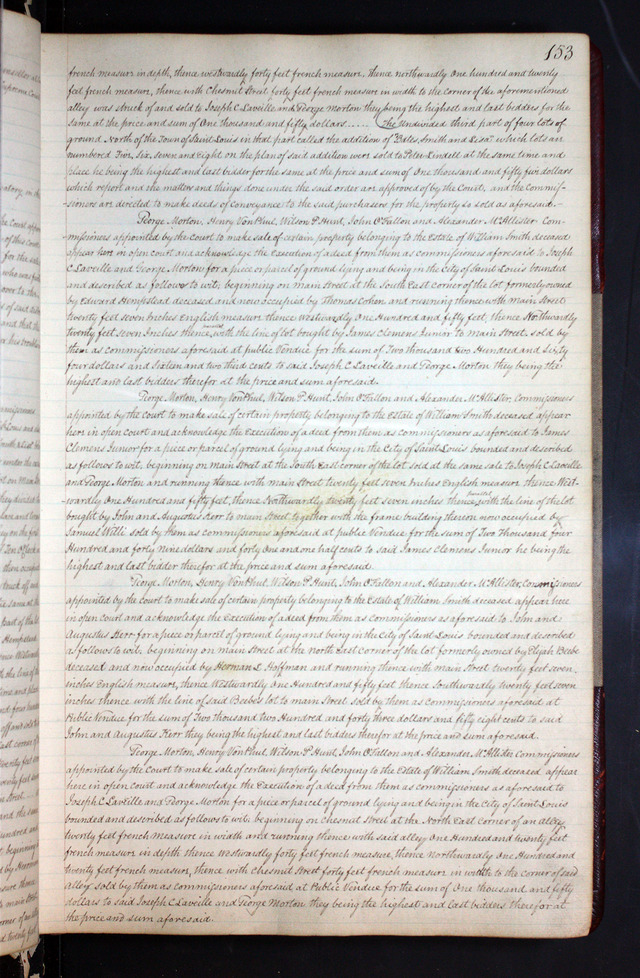 153
french measure in depth, thence westwardly forty feet french measure. thence northwardly One hundred and twenty
feet french measure, thence with Chesnut Street forty feet french measure in width to the corner of the aforementioned
alley was struck of and sold to Joseph C Laveille and George Morton they being the highest and last bidders for the
same at the price and sum of One thousand and fifty dollars...... The Undivided third part of four lots of
ground North of the Town of Saint Louis in that part called the addition of Bates, Smith and Lisa which lots are
numbered Five, Six, seven and Eight on the plan of said addition were sold to Peter Lindell at the same time and
place he being the highest and last bidder for the same at the price and sum of One thousand and fifty five dollars
which report and the matters and things done under the said order are approved of by the Court, and the Commis-
-sioners are directed to make deeds of conveyance to the said purchasers for the property so sold as aforesaid.-
George Morton, Henry VonPhul, Wilson P. Hunt, John O'Fallon and Alexander McAllister Com-
-missioners appointed by the Court to make sale of certain property belonging to the Estate of William Smith deceased
appear here in open court and acknowledge the Execution of a deed from them as commissioners aforesaid to Joseph
C Laveille and George Morton for a piece or parcel of ground lying and being in the City of Saint Louis bounded
and described as follows to wit: beginning on main Street at the South East corner of the lot formerly owned
by Edward Hempstead deceased and now occupied by Thomas Cohen and running thence with main Street
twenty feet seven Inches English measure thence westwardly One Hundred and fifty feet, thence Northwardly
twenty feet seven Inches thence parallel with the line of lot bought by James Clemens Junior to main Street. sold by
them as commissioners aforesaid at public Vendue for the sum of Two thousand two Hundred and Sixty
four dollars and Sixteen and two third cents to said Joseph C Laveille and George Morton they being the
highest and last bidders therefor at the price and sum aforesaid.
George Morton, Henry VonPhul, Wilson P. Hunt, John O'Fallon and Alexander McAllister, Commissioners
appointed by the court to make sale of certain property belonging to the Estate of William Smith deceased appear
here in open court and acknowledge the Execution of a deed from them as commissioners as aforesaid to James
Clemens Junior for a piece or parcel of ground lying and being in the City of Saint Louis bounded and described
as follows to wit: beginning on Main Street at the South East corner of the lot sold at the same sale to Joseph C Laveille
and George Morton and running thence with main Street twenty feet seven Inches English measure thence West-
-wardly One Hundred and fifty feet, thence Northwardly twenty feet seven inches thence parallel with the line of the lot
bought by John and Augustus Kerr to main Street together with the frame building thereon now occupied by
Samuel Willi sold by them as commissioners aforesaid at public Vendue for the sum of Two Thousand four
Hundred and forty nine dollars and forty one and one half cents to said James Clemens Junior he being the
highest and last bidder therefor at the price and sum aforesaid.
George Morton, Henry VonPhul, Wilson P. Hunt, John O'Fallon and Alexander McAllister, Commissioners
appointed by the court to make sale of certain property belonging to the Estate of William Smith deceased appear here
in open court and acknowledge the Execution of a deed from them as commissioners as aforesaid to John and
Augustus Kerr for a piece or parcel of ground lying and being in the City of Saint Louis bounded and described
as follows to wit: beginning on main Street at the North East Corner of the lot formerly owned by Elijah Beebe
deceased and now occupied by Herman L Hoffman and running thence with main Street twenty feet seven
inches English measure, thence Westwardly One Hundred and fifty feet thence Southwardly twenty feet seven
inches thence with the line of said Beebes lot to main Street sold by them as commissioners aforesaid at
Public Vendue for the sum of Two thousand two Hundred and forty three dollars and fifty eight cents to said
John and Augustus Kerr they being the highest and last bidders therefor at the price and sum aforesaid.
George Morton, Henry VonPhul, Wilson P. Hunt, John O'Fallon and Alexander McAllister Commissioners
appointed by the Court to make sale of certain property belonging to the Estate of William Smith deceased appear
here in open court and acknowledge the Execution of a deed from them as commissioners as aforesaid to
Joseph C Laveille and George Morton for a piece or parcel of ground lying and being in the City of Saint Louis
bounded and described as follows to wit: beginning on chesnut Street at the North East Corner of an alley
twenty feet french Measure in width and running thence with said alley One Hundred and twenty feet
french measure in depth thence Westwardly forty feet french measure, thence Northwardly One Hundred and
twenty feet french measure, thence with Chesnut Street forty feet french measure in width to the corner of said
Alley sold by them as commissioners aforesaid at Public Vendue for the sum of One thousand and fifty
dollars to said Joseph C Laveille and George Morton they being the highest and last bidders therefor at
the price and sum aforesaid.